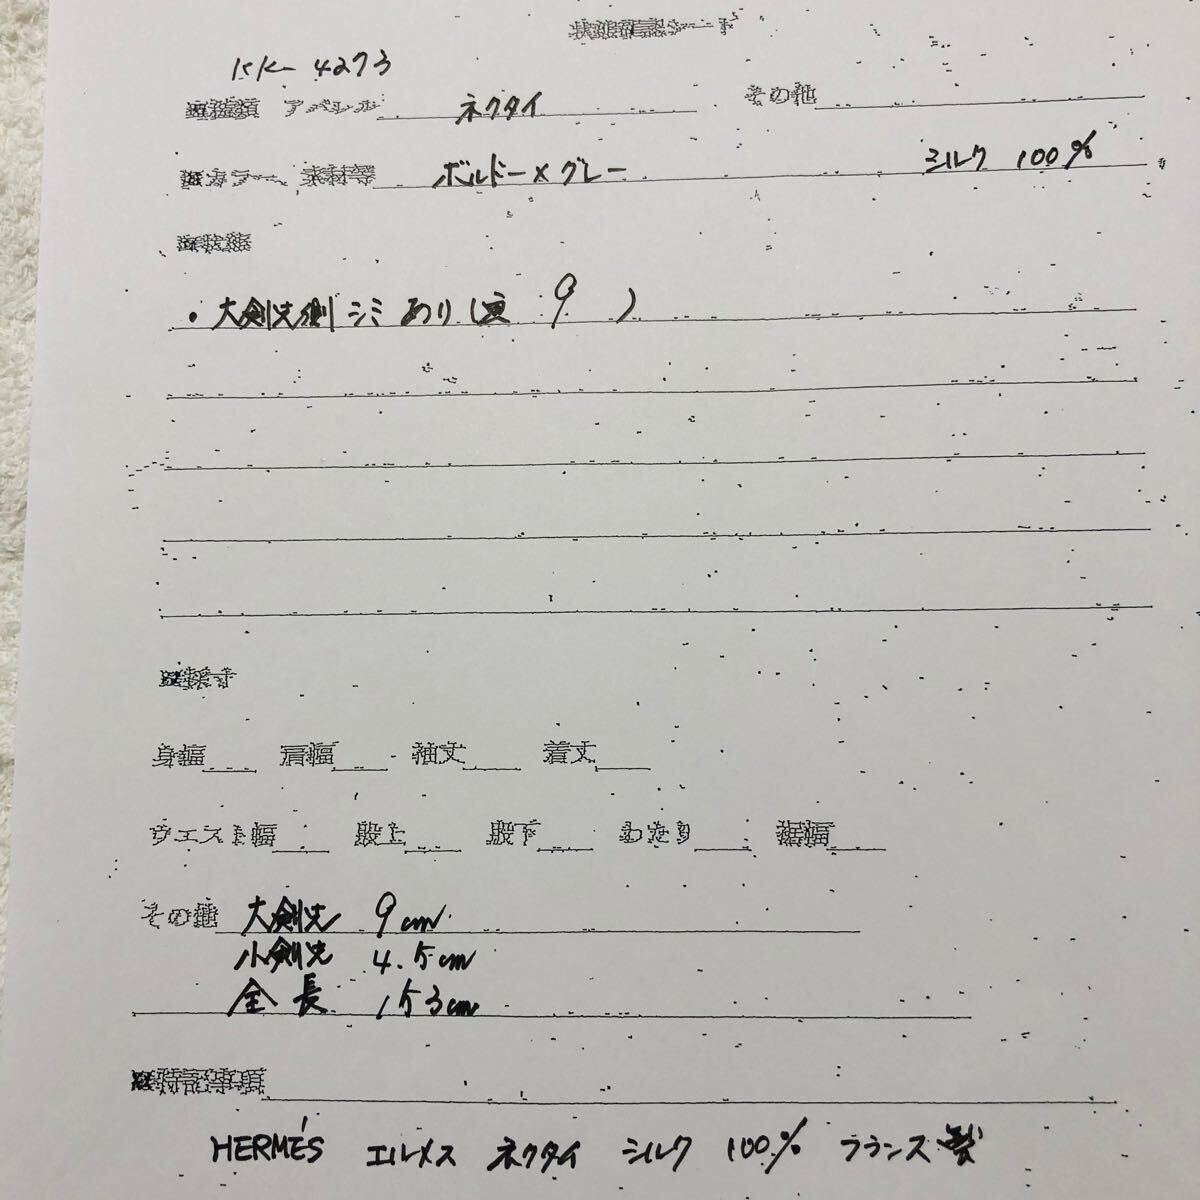 状態確認シート
KK-4273
※種類 アパレル ネクタイ その他
※カラー、素材等 ボルドー×グレー シルク 100%
※状態
・大剣先側 シミあり ( 9 )
※採寸
身幅 肩幅 袖丈 着丈
ウエスト幅 股上 股下 わたり 裾幅
その他 大剣先 9cm
小剣先 4.5cm
全長 153cm
※特記事項
HERMÈS エルメス ネクタイ シルク 100% フランス製